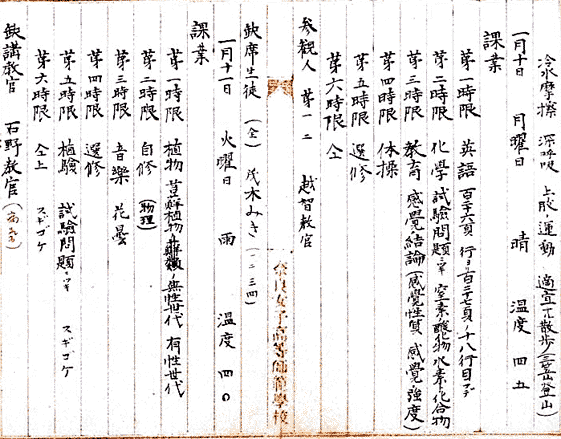 冷水摩擦 深呼吸 上肢ノ運動 適宜ノ散歩(三笠山登山)
一月十日 月曜日 晴 温度 四五
課業
第一時限 英語 百三十六頁 行ヨリ百三十七頁ノ十八行目マデ
第二時限 化学 試験問題ノ 窒素酸化物 水素化合物
第三時限 教育 感覚結論(感覚性質 感覚ノ強度)
第四時限 体操
第五時限 選修
第六時限 仝
参観人 第一二 越智教官
奈良女子高等師範学校
欠席生徒 (全) 茂木みき (一二三四)
一月十一日 火曜日 雨 温度 四〇
課業
第一時限 植物 苔蘚植物 無性世代 有性世代
第二時限 自修 (物理)
第三時限 音楽 花曇
第四時限 選修
第五時限 植験 試験問題 スギゴケ
第六時限 仝上 スギゴケ
欠講教官 石野教官